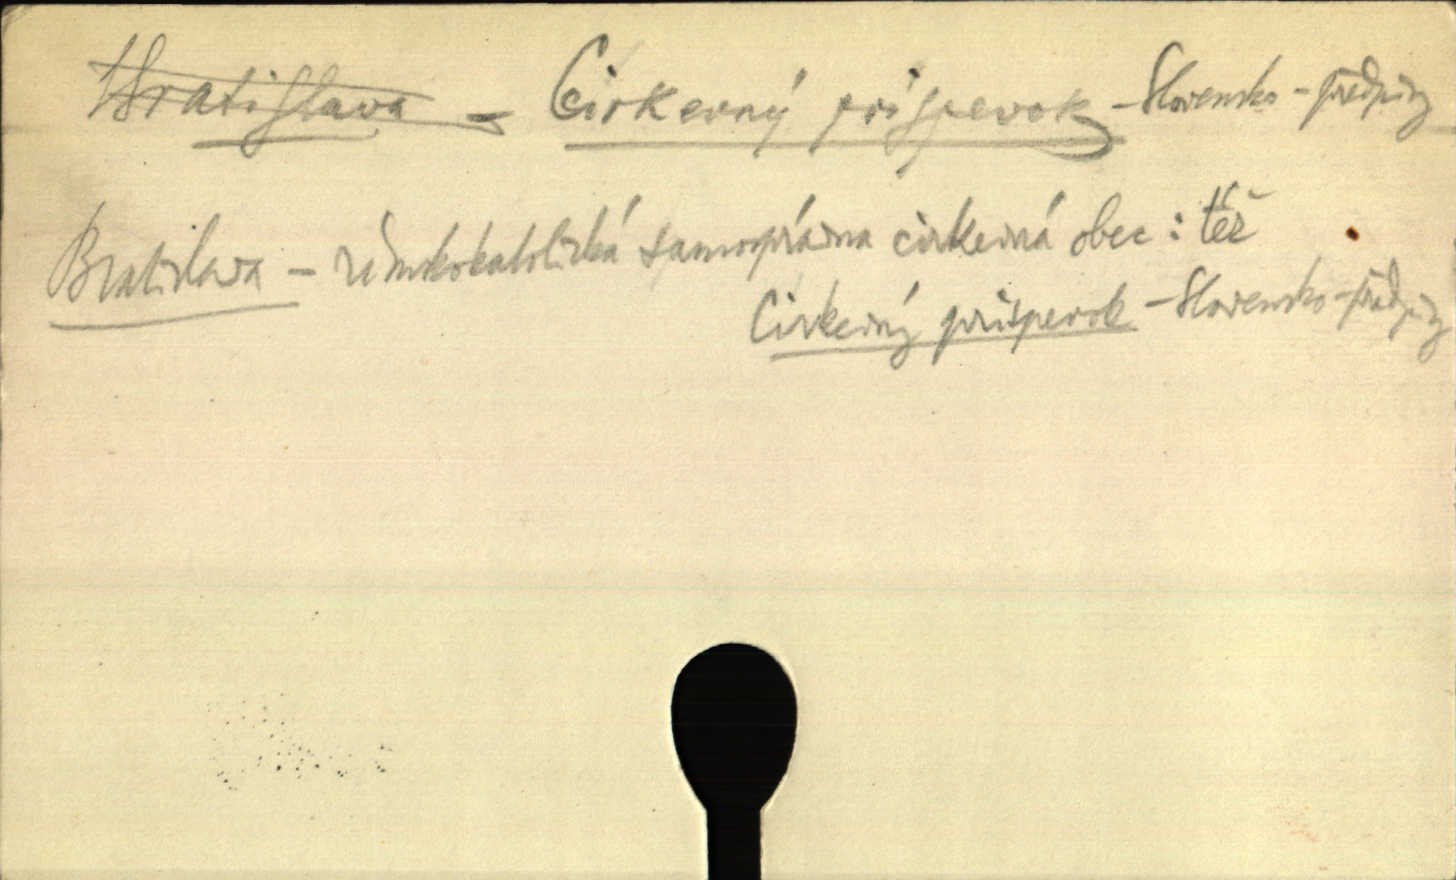 Bratislava - Cirkevný príspevok - Slovensko - předpisy
Bratislava - rímskokatolícká samosprávna cirkevná obec : též
Cirkevný príspevok - Slovensko - předpisy